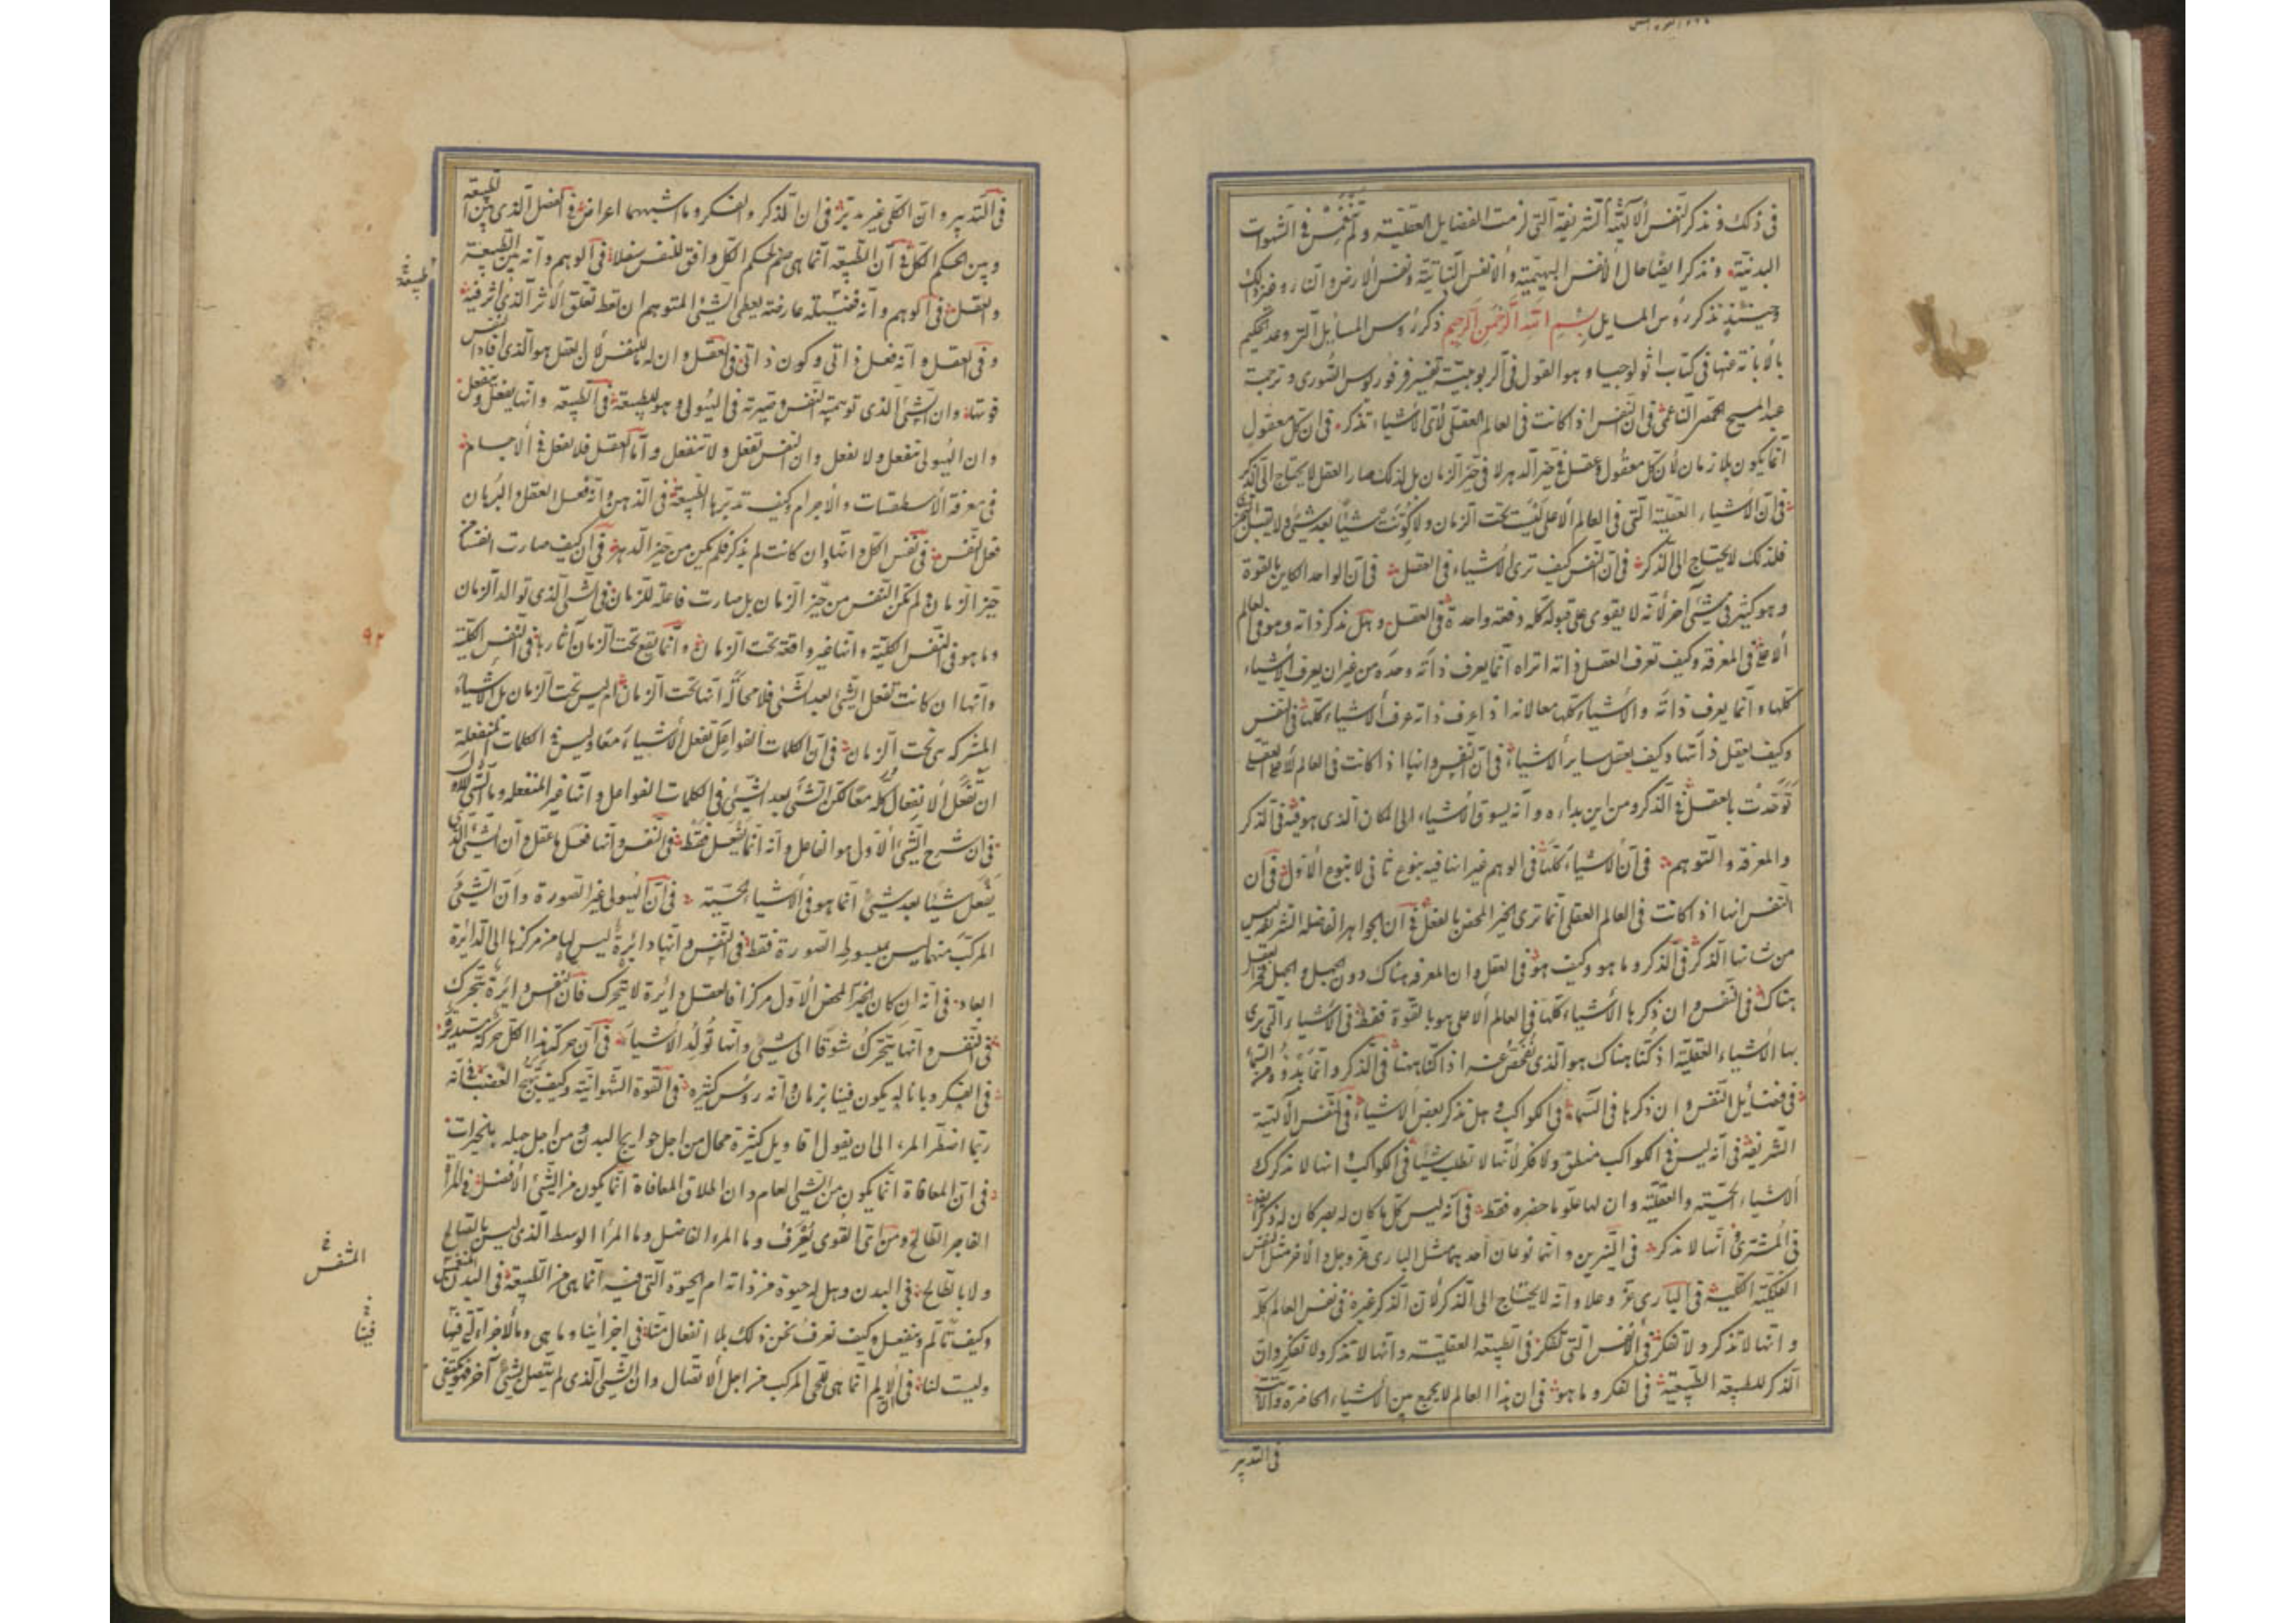 فى ذلك ونذكر النفس الالهية الشريفة التى لزمت الفضايل العقلية ولم تنغمس فى الشهوات
البدنية ونذكر ايضا حال الانفس البهيمية والانفس النباتية ونفس الارض والنار وغير ذلك
وحينئذ نذكر رؤس المسايل بسم الله الرحمن الرحيم ذكر رؤس المسايل التى وعد الحكيم
بالابانة عنها فى كتاب اثولوجيا وهو القول فى الربوبية تفسير فرفوريوس الصورى وترجمة
عبد المسيح الحمصى الناعمى فى ان النفس اذا كانت فى العالم العقلى لاى الاشياء تذكر فى ان كل معقول
انما يكون بلا زمان لان كل معقول وعقل فى حيز الدهر لا فى حيز الزمان بل لذلك صار العقل لا يحتاج الى الذكر
فى ان الاشياء العقلية التى فى العالم الاعلى ليست تحت الزمان ولا كونت شيئا بعد شئ ولا تقبل
فلذلك لا يحتاج الى الذكر فى ان النفس كيف ترى الاشياء فى العقل فى ان الواحد الكاين بالقوة
وهو كثير فى شئ آخر لانه لا يقوى على قبوله كله دفعة واحدة فى العقل وهل نذكر ذاته وهو فى العالم
الاعلى فى المعرفة وكيف تعرف العقل ذاته اتراه انما يعرف ذاته وحده من غير ان يعرف الاشياء
كلها وانما يعرف ذاته والاشياء كلها معا لانه اذا عرف ذاته عرف الاشياء كلها فى النفس
وكيف يعقل ذاتها وكيف يعقل ساير الاشياء فى ان النفس وانها اذا كانت فى العالم الاعلى العقلى
توحدت بالعقل فى الذكر ومن اين بداءه وانه يسوق الاشياء الى المكان الذى هو فيه فى الذكر
والمعرفة والتوهم فى ان الاشياء كلها فى الوهم غير انها فيه بنوع ثانى لا بنوع الاول فى ان
النفس انها اذا كانت فى العالم العقلى انما ترى الخير المحض بالعقل فى ان الجواهر الفاضلة الشريفة ليس
من شانها الذكر فى الذكر وما هو وكيف هو فى العقل وان المعرفة هناك دون الجهل والجهل
هناك فى النفس وان ذكرها الاشياء كلها فى العالم الاعلى هو بالقوة فقط فى الاشياء التى نرى
بها الاشياء العقلية اذ كنا هناك هو الذى نفحص عنه اذا كنا ههنا فى الذكر وانما بدؤه من السماء
فى فضايل النفس وان ذكرها فى السماء فى الكواكب وهل نذكر بعض الاشياء فى النفس الالهية
الشريفة فى انه ليس فى الكواكب منطق ولا فكر لانها لا تطلب شيئا فى الكواكب انها لا تذكر
الاشياء الحسية والعقلية وان لها علوما حضره فقط فى انه ليس كل ما كان له بصر كان له ذكر
فى المشترى انها لا تذكر فى النيرين وانها نوعان احدهما مثل البارى عز وجل والاخر مثل النفس
الفلكية الكلية فى البارى عز وعلا وانه لا يحتاج الى الذكر لان الذكر غيره فى نفس العالم كله
وانها لا تذكر ولا تفكر فى الانفس التى تفكر فى الطبيعة العقلية وانها لا تذكر ولا تفكر وان
الذكر للطبيعة الطبيعية فى الفكر وما هو فى ان هذا العالم لا يجمع بين الاشياء الحاضرة والآتية
فى التدبير
فى التدبير وان الكلى غير مدبر فى ان الذكر والفكر وما اشبههما اعراض فى الفصل الذى بين الطبيعة
وبين الحكيم الكل فى ان الطبيعة انما هى صنم لحكم الكل وافق للنفس سفلا فى الوهم وانه بين الطبيعة
والعقل فى الوهم وانه فضيلة عارضة يعطى الشئ المتوهم ان تعلق الاثر الذى اثر فيه
وفى العقل وانه فعل ذاتى وكون ذاتى فى العقل وان له للنفس لان العقل هو الذى افاد النفس
قوتها وان الشئ الذى توهمته النفس وصيرته فى الهيولى وهو الطبيعة فى الطبيعة وانها يفعل وينفعل
وان الهيولى تنفعل ولا تفعل وان النفس تفعل ولا تنفعل واما العقل فلا يفعل فى الاجسام
فى معرفة الاسطقسات والاجرام وكيف تدبرها الطبيعة فى الذهن وانه فعل العقل والبرهان
فعل النفس فى نفس الكل وانها وان كانت لم يذكر فلم تكن من حيز الدهر فى ان كيف صارت انفسنا
حيز الزمان ولم تكن النفس من حيز الزمان بل صارت فاعلة للزمان فى الشئ الذى توالد الزمان
وما هو فى النفس الكلية وانها غير واقعة تحت الزمان وانما تقع تحت الزمان آثارها فى النفس الكلية
وانها ان كانت تفعل الشئ بعد الشئ فلا محالة انها تحت الزمان ام ليس تحت الزمان بل الاشياء
المشتركة هى تحت الزمان فى ان الكلمات الفواعل تفعل الاشياء معا وليس فى الكلمات المنفعلة
ان تفعل الانفعال كله معا لكن الشئ بعد الشئ فى الكلمات الفواعل وانها غير المنفعلة وما الشئ الاول
فى ان شرح الشئ الاول هو الفاعل وانه انما يفعل فقط فى النفس وانها فعل ما عقل وان الشئ الذى
يفعل شيئا بعد شئ انما هو فى الاشياء الحسية فى ان الهيولى غير الصورة وان الشئ
المركب منهما ليس بمبسوط الصورة فقط فى النفس وانها دائرة ليس لها من مركزها الى الدائرة
ابعاد فى انه ان كان الخير المحض الاول مركزا فالعقل دائرة لا يتحرك فان النفس دائرة تتحرك
فى النفس وانها يتحرك شوقا الى شئ وانها تولد الاشياء فى ان حركة هذا الكل حركة مستديرة
فى الفكر وما باله يكون فينا بزمان وانه رؤس كثيرة فى القوة الشهوانية وكيف يهيج الغضب فانه
ربما اضطر المرء الى ان يقول اقاويل كثيرة محال من اجل حوايج البدن ومن اجل جهله بالخيرات
فى ان المعاقاة انما يكون من الشئ العام وان اطلاق المعافاة انما يكون من الشئ الافضل فى المرء
الفاجر الطالح ومن اى القوى يعرف وما المرء الفاضل وما المرء الوسط الذى ليس بالصالح
ولا بالطالح فى البدن وهل له حيوة من ذاته ام الحيوة التى فيه انما هى من الطبيعة فى البدن المتنفس
وكيف تألم وينفعل وكيف نعرف نحن ذلك بلا انفعال منا فى اجزائنا وما هى وما الاجزاء التى فينا
وليست لنا فى الايلم انما هى للحى المركب من اجل الاتصال وان الشئ الذى لم يتصل بشئ آخر فيكتفى
طبيعة
٩٢
المتنفس
فينا